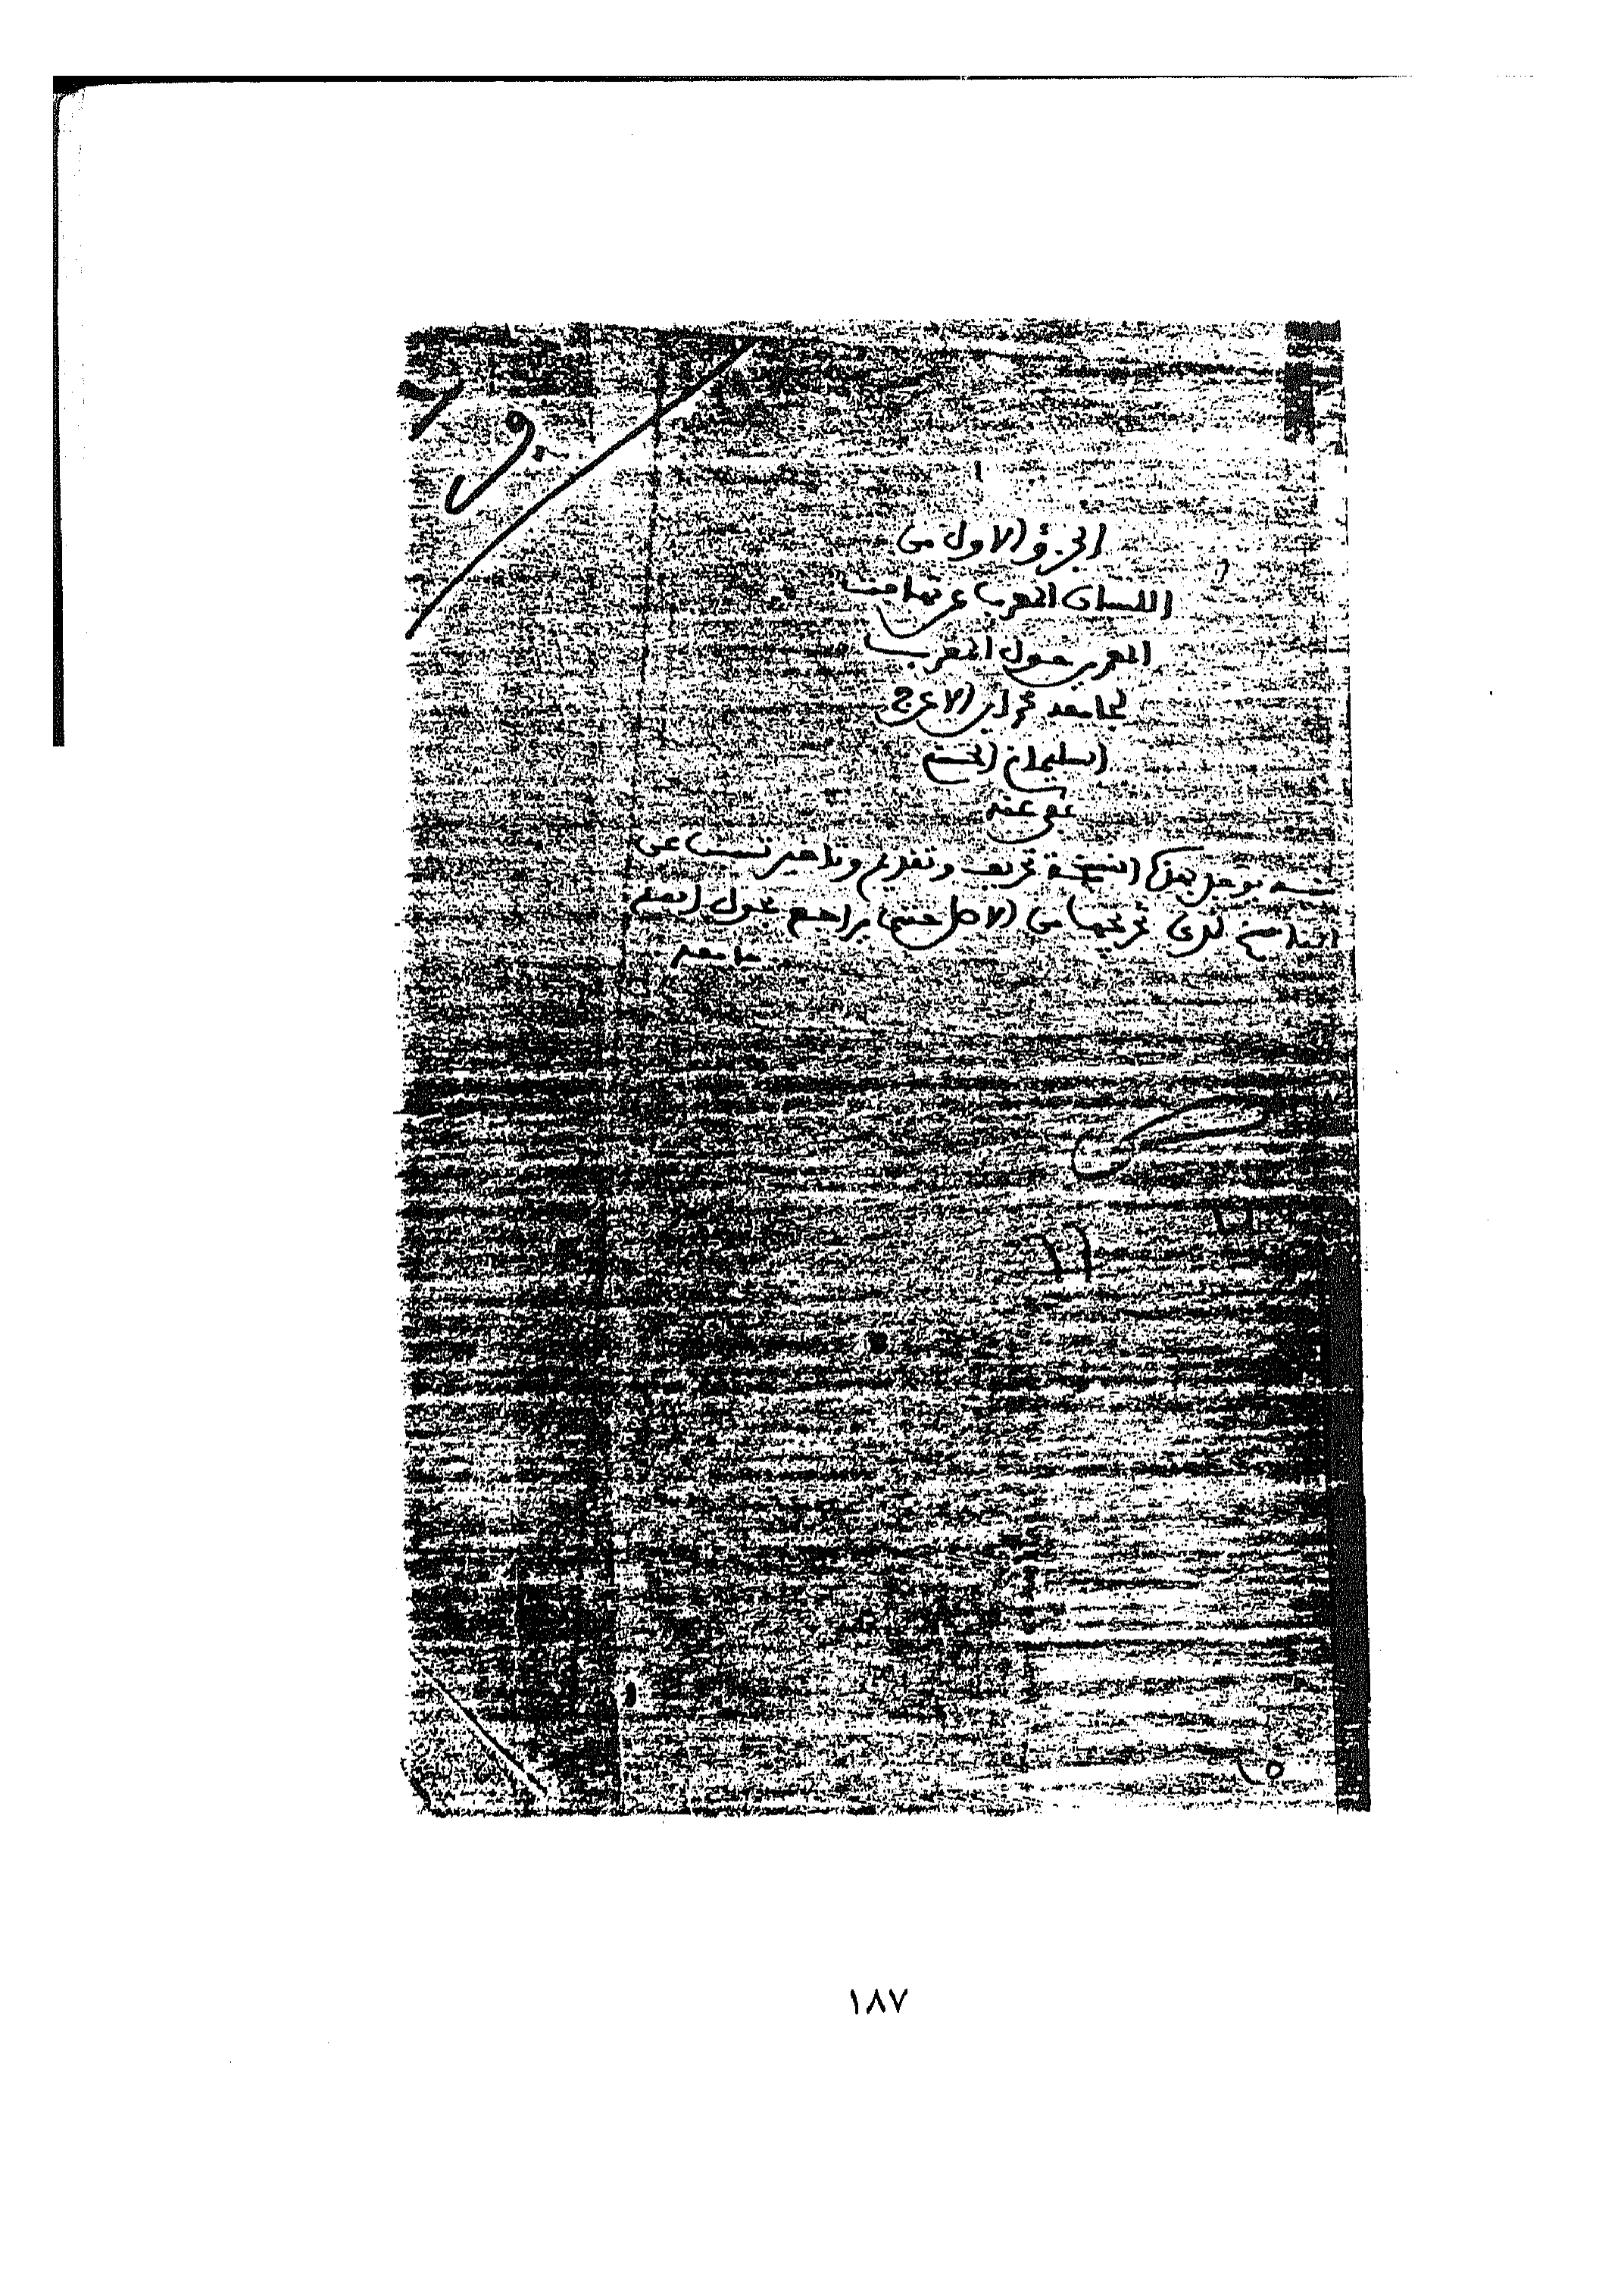 الجزؤ الاول من
اللسان المعرب عن تهافت
المعرب حول المغرب
لجامعه محمد ابن الاعرج
السليماني الحسني
عفي عنه
يوجد بهذه النسخة تحريف وتقديم وتاخير تسبب عن
الناسخ لدى تخريجها من الاصل حتى يراجع بحول الله
جامعه
١٨٧